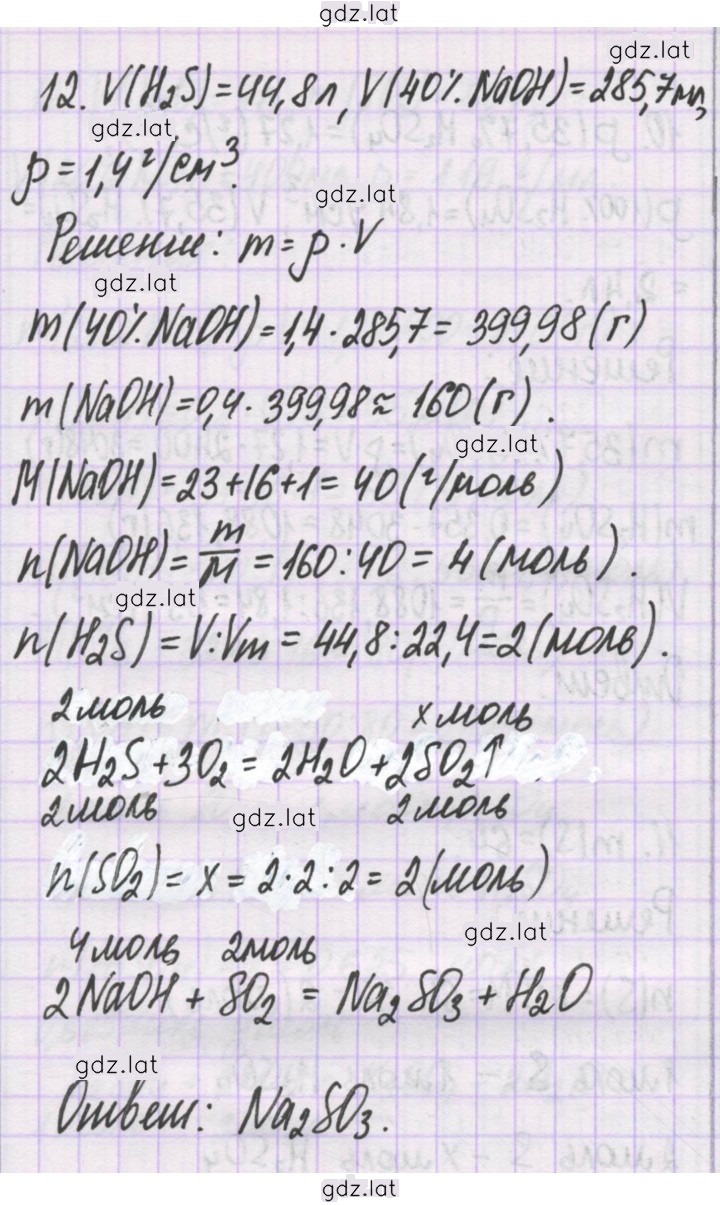 gdz.lat
gdz.lat
12. V(H₂S)=44,8л, V(40% NaOH)=285,7мл,
gdz.lat
ρ=1,4г/см³.
gdz.lat
Решение: m=ρ·V
gdz.lat
m(40% NaOH)=1,4·285,7=399,98(г)
m(NaOH)=0,4·399,98≈160(г).
gdz.lat
M(NaOH)=23+16+1=40(г/моль)
n(NaOH)=m/M=160:40=4(моль).
gdz.lat
n(H₂S)=V:Vm=44,8:22,4=2(моль).
2моль x моль
2H₂S+3O₂=2H₂O+2SO₂↑
2моль 2моль
gdz.lat
n(SO₂)=x=2·2:2=2(моль)
gdz.lat
4моль 2моль
2NaOH+SO₂=Na₂SO₃+H₂O
gdz.lat
Ответ: Na₂SO₃.
gdz.lat